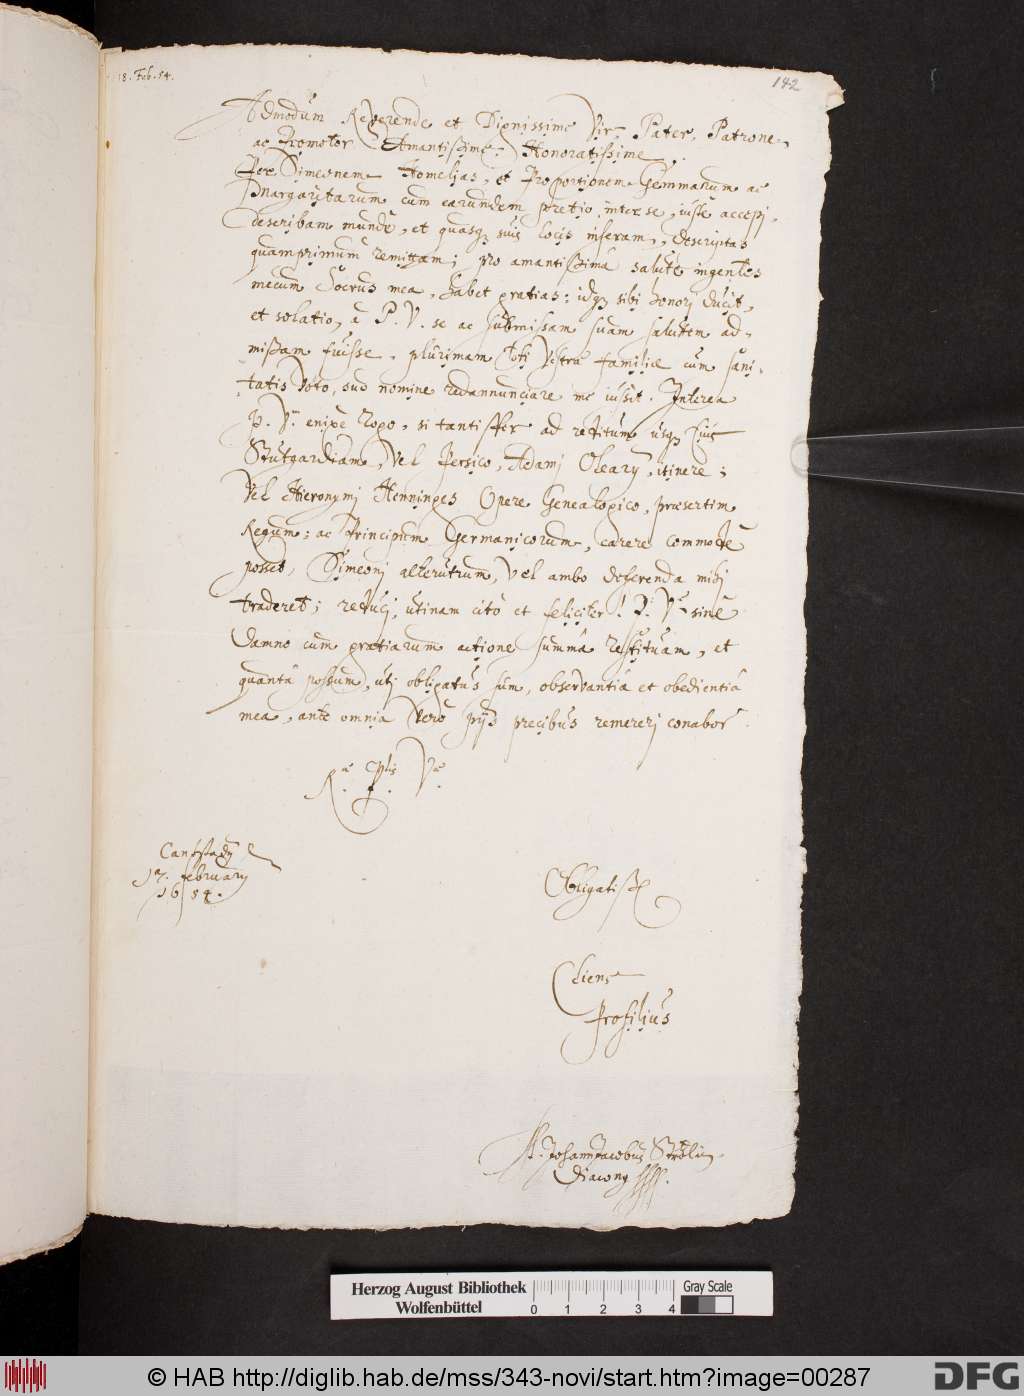 18. Feb. 54.
142
Admodum Reverende et Dignissime Vir, Pater, Patrone,
ac Promotor Amantißime, Honoratißime,
Per Simeonem Homelias, et Proportionem Gemmarum ac
Margaritarum cum earundem pretio inter se, iuste accepi,
describam mundè, et quasq suis locis inseram, descriptas
quamprimùm remittam; pro amantißimâ salute ingentes
mecum Socrus mea, habet gratias: idq sibi honori ducit,
et solatio, a P. V. se ac submissam suam salutem ad-
mißam fuisse, plurimam toti Vestrae familiae cum sani-
tatis voto, suo nomine redannunciare me iussit. Interea
P. V. enixe rogo, si tantisper ad reditum usq huic
Stutgardiam, Vel Persico, Adami Oleary, itinere;
Vel Hieronymi Henninges Opere Genealogico, praesertim
Regum: ac Principum Germanicorum, carere commode
posset, Simeoni alterutrum, vel ambo deferenda mihi
traderet; reduci, utinam citò et feliciter! P. V. sine
damno cum gratiarum actione summâ restituam, et
quantâ possum, uti obligatus sum, observantiâ et obedientiâ
mea, ante omnia vero pijs precibus remereri conabor.
R. P. V.
Cantstadij
17. february
1654.
Obligatiß
Cliens
Profilius
M. Johann Jacobus Strölin
Diacony
Herzog August Bibliothek
Wolfenbüttel
0 1 2 3 4
Gray Scale
© HAB http://diglib.hab.de/mss/343-novi/start.htm?image=00287
DFG